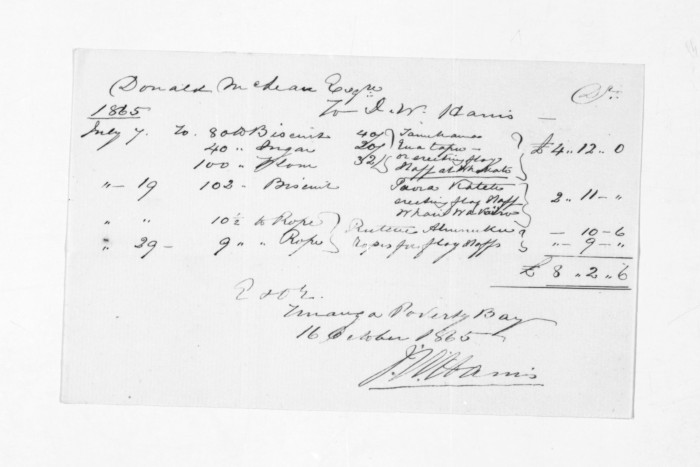 Donald McLean Esqre Dr.
1865 To J. W. Harris —
July 7. To. 80 lb Biscuit 40/
40 „ Sugar 20/ £4 „ 12 „ 0
100 „ Flour 32/ or erecting flag Staff at
„ — 19 102 „ Biscuit erecting flag Staff 2 „ 11 — „
„ „ 10½ lb Rope — 10 – 6
„ 29 — 9 „ „ Rope ropes for flag Staffs „ – 9 – „
£ 8 „ 2 „ 6
E & O E.
Turanga Poverty Bay
16 October 1865
J. W. Harris